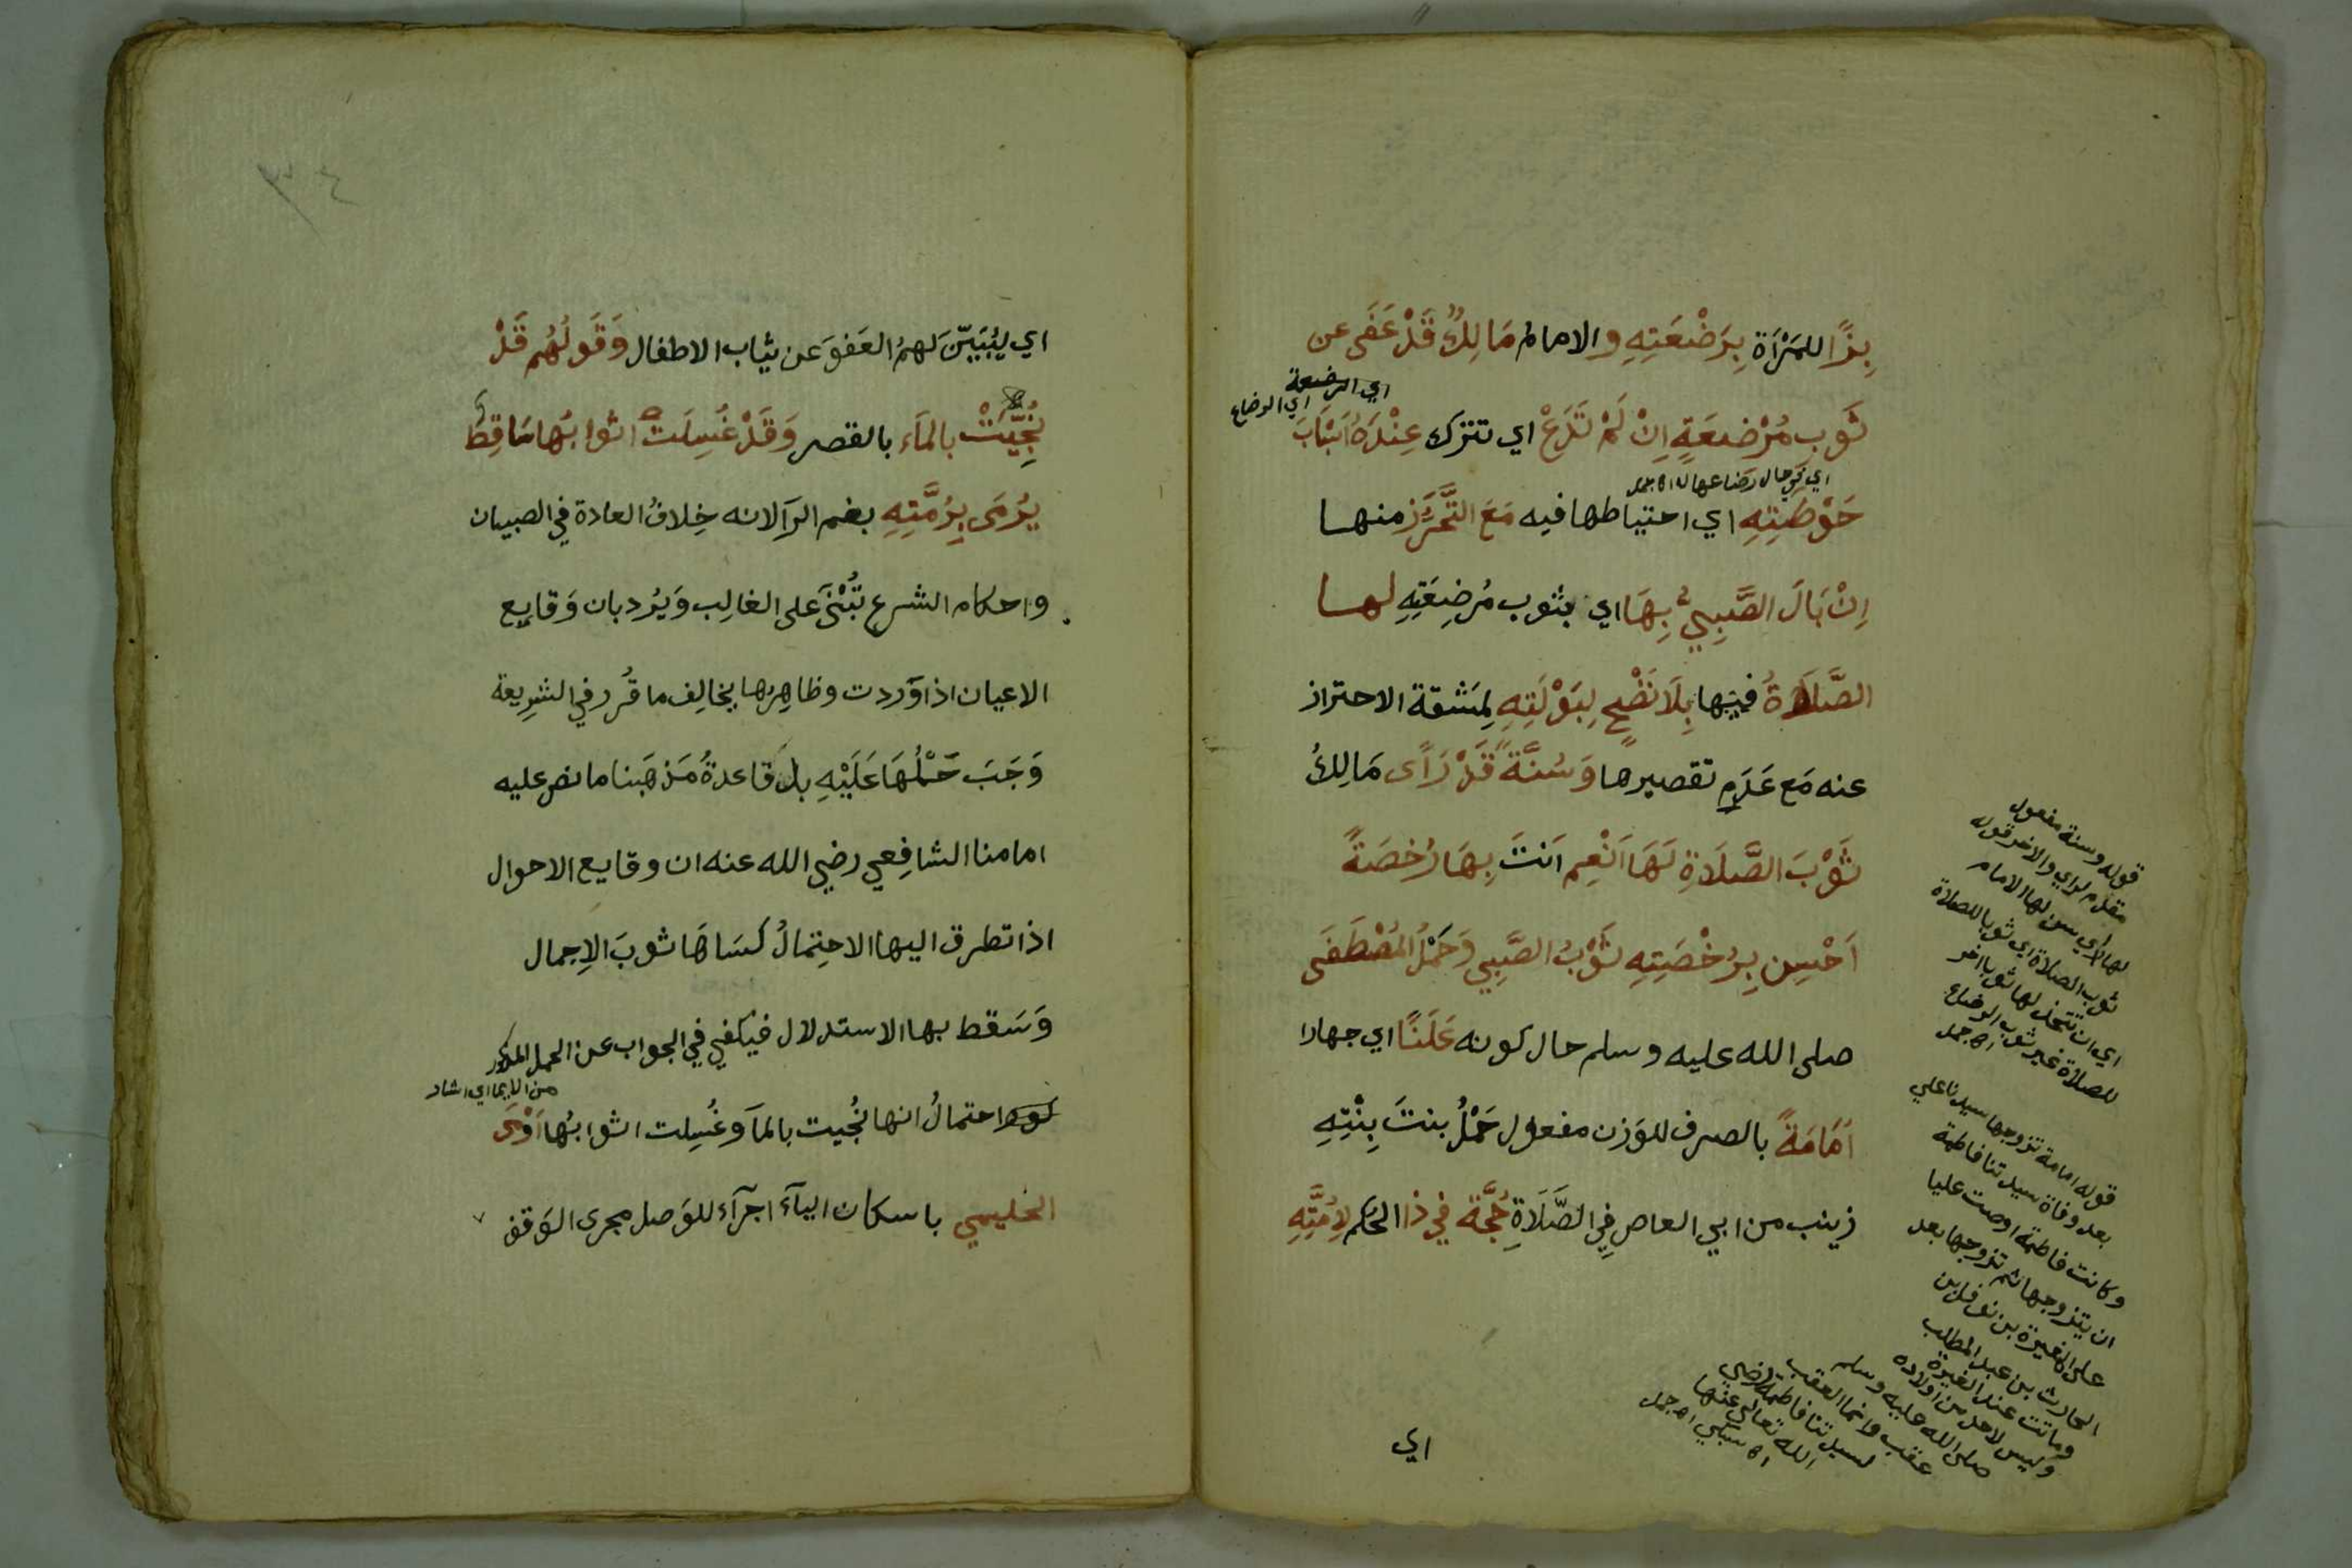 بِرًّا للمَرْأَة بِرَضْعَتِهِ والامام مَالِكٌ قَدْ عَفَى عن
اي الرضعة
اي الرضاع
ثَوبِ مُرْضعَةٍ اِنْ لَمْ تَدَعْ اي تترك عِنْدَهُ اَسْبَابَ
اي في حال رضاعها له اه جمل
حَوْطَتِهِ اي احتياطها فيه مَعَ التَّحَرُّزِ منهــا
اِنْ بَالَ الصَّبِيُّ بِهَا اي بثوب مُرضِعَتِهِ لهــا
الصَّلَاةُ فيها بِلَا نَضْحٍ لِبَوْلَتِهِ لِمَشقة الاحتراز
عنه مَع عَدَمِ تقصيرها وَسُنَّةً قَدْ رَأَى مَالِكُ
ثَوْبَ الصَّلَاةِ لَهَا اَنْعِم اَنتَ بِهَا رُخصَةً
اَحْسِن بِرُخْصَتِهِ ثَوْبُ الصَّبِي وَحَمْلُ المُصْطَفَى
صلى الله عليه وسلم حال كونه عَلَنًا اي جهارا
اُمَامَةً بالصرف للوَزن مفعول حَمْلُ بنتَ بِنْتِهِ
زينب من ابي العاص فِي الصَّلَاةِ حُجَّة في ذا الحُكم لِاُمَّتِهِ
اي
قوله وسنة مفعول
مقدم لراي والاخر قوله
لها اي سن لها الامام
ثوب الصلاة اي ثوبا للصلاة
اي ان تتخذ لها ثوبا اخر
للصلاة غير ثوب الرضاع
اه جمل
قوله امامة تزوجها سيدنا علي
بعد وفاة سيدتنا فاطمة
وكانت فاطمة اوصت عليا
ان يتزوجها ثم تزوجها بعد
علي المغيرة بن نوفل بن
الحارث بن عبد المطلب
وماتت عند المغيرة
وليس لاحد من اولاده
صلى الله عليه وسلم
عقب وانما العقب
لسيدتنا فاطمة رضي
الله تعالى عنها
اه جمل
٣٤
اي ليُبَيِّنَ لهمُ العَفوَ عن ثياب الاطفال وَقَولُهُم قَدْ
نُجِّيَتْ بالمَاء بالقصر وَقَدْ غُسِلَتْ اثوابُها سَاقِطٌ
يُرْمَى بِرُمَّتِهِ بضم الرَا لانه خِلافُ العادة في الصبيان
واحكام الشرع تُبْنَى على الغالِب وَيُرد بان وَقايع
الاعيان اذا وَردت وظاهِرها يخالِف ما قُرر في الشرِيعة
وَجَبَ حَمْلُهَا عَلَيْهِ بل قَاعدةُ مَذهَبنا ما نص عليه
امامنا الشافِعي رضي الله عنه ان وقايع الاحوال
اذا تطرق اليها الاحتِمالُ كسَاهَا ثوبَ الاِجمال
وَسَقط بها الاستدلال فيكفي في الجواب عن الحمل المذكور
من الايما اي اشار
احتمالُ انها نُجيت بالمَا وَغُسِلت اثوابُها اَوْمَى
الخليمي باسكان اليآء اجرَآء للوَصل مجرى الوَقف